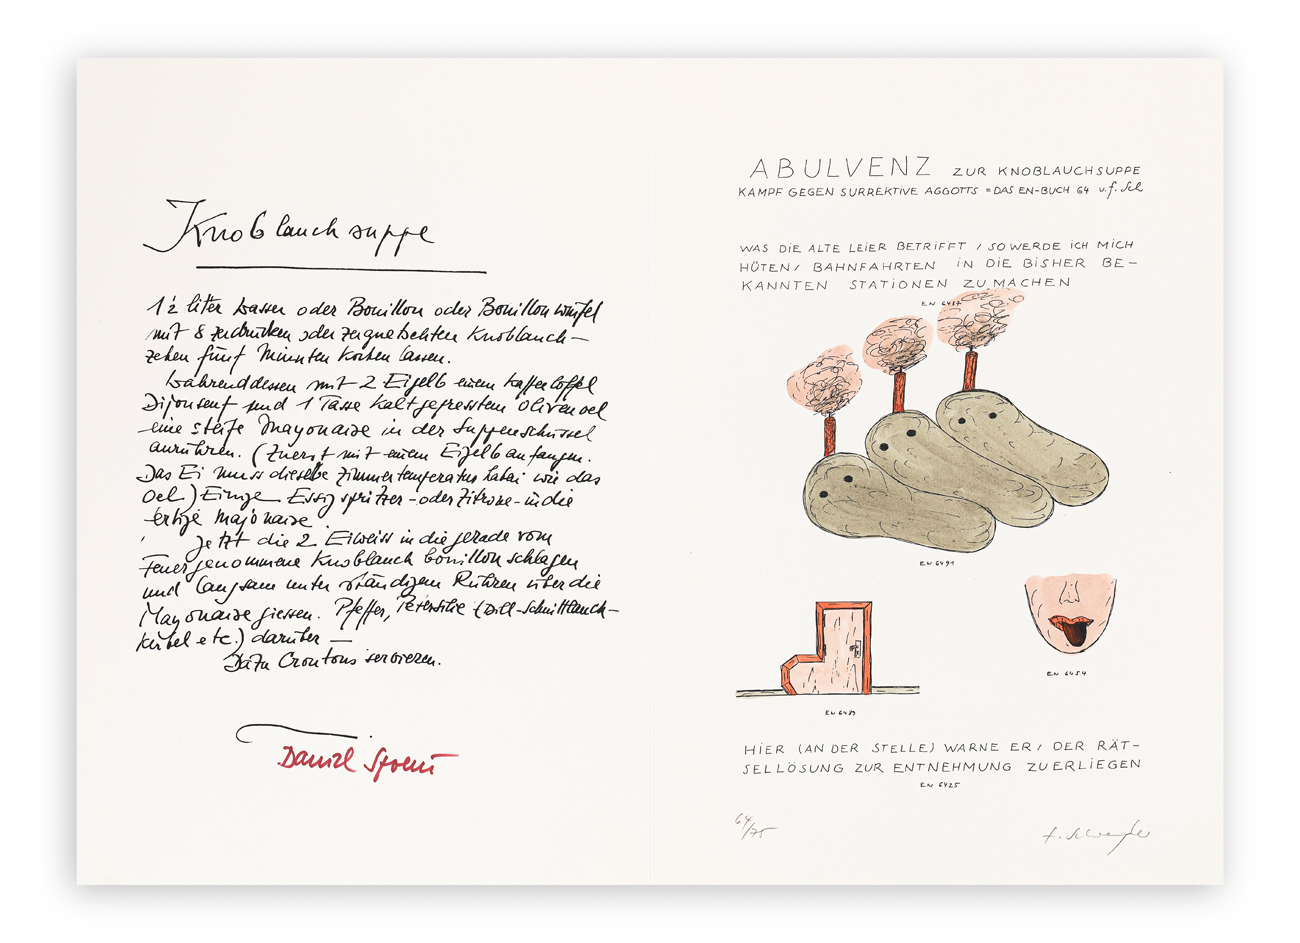 Knoblauchsuppe
1½ liter Wasser oder Bouillon oder Bouillonwürfel
mit 8 zerdrückten oder zerquetschten Knoblauch-
zehen fünf Minuten kochen lassen.
Währenddessen mit 2 Eigelb einem Kaffeelöffel
Dijonsenf und 1 Tasse kaltgepresstem Olivenoel
eine steife Mayonaise in der Suppenschüssel
anrühren. (Zuerst mit einem Eigelb anfangen.
Das Ei muss dieselbe Zimmertemperatur haben wie das
Oel) Einige Essigspritzer - oder Zitrone - in die
fertige Majonaise.
Jetzt die 2 Eiweiss in die gerade vom
Feuer genommene Knoblauch bouillon schlagen
und langsam unter ständigem Rühren über die
Mayonaise giessen. Pfeffer, Petersilie (Dill-Schnittlauch-
Kerbel etc.) darüber —
Dazu Croutons servieren.
Daniel Spoerri
ABULVENZ ZUR KNOBLAUCHSUPPE
KAMPF GEGEN SURREKTIVE AGGOTTS = DAS EN-BUCH 64 v. f. Sch
WAS DIE ALTE LEIER BETRIFFT / SO WERDE ICH MICH
HÜTEN / BAHNFAHRTEN IN DIE BISHER BE-
KANNTEN STATIONEN ZU MACHEN
EN
EN 6491
EN 6454
EN 6489
HIER (AN DER STELLE) WARNE ER / DER RÄT-
SELLÖSUNG ZUR ENTNEHMUNG ZU ERLIEGEN
EN 6425
64/75